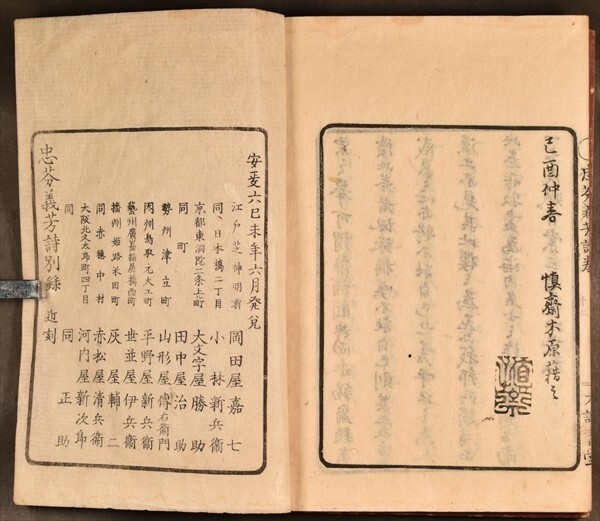 己酉仲春 慎齋木原藉之
安政六己未年六月発兌
江戸芝神明前 岡田屋嘉七
同日本橋二丁目 小林新兵衛
京都東洞院二条上町 大文字屋勝助
同町 田中屋治助
勢州津立町 山形屋傳右衛門
因州鳥取元大工町 平野屋新兵衛
藝州廣島猫屋橋西町 世並屋伊兵衛
播州姫路米田町 灰屋輔二
同赤穂中村 赤松屋清兵衛
大阪北久太郎町四丁目 河内屋新次郎
同 同正助
忠芬義芳詩別錄 近刻